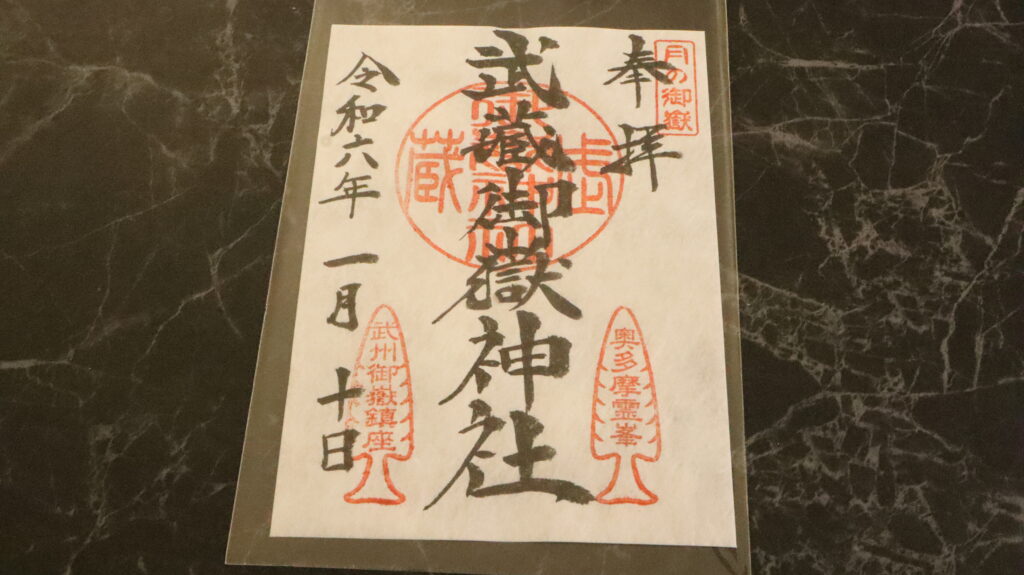 月の御嶽
奉拝
武蔵御嶽神社
武蔵
奥多摩霊峯
武州御嶽鎮座
令和六年
一月
十日